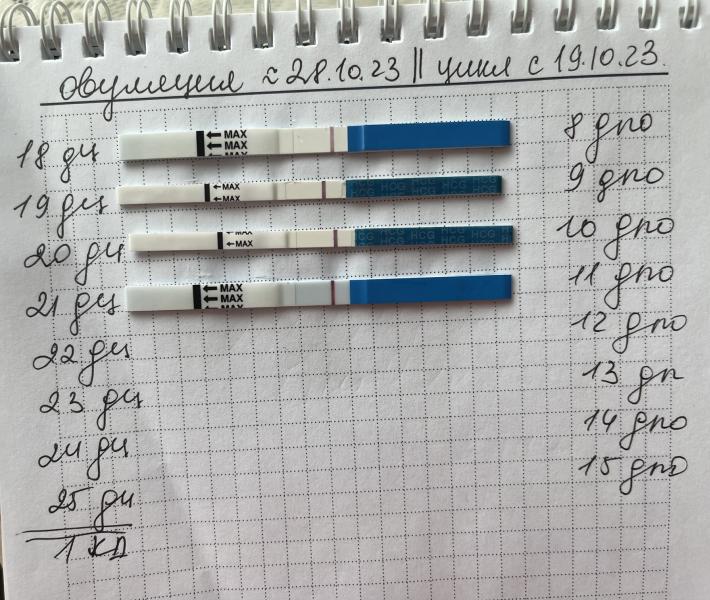 овуляция ≈ 28.10.23 || цикл с 19.10.23.
18 дц MAX MAX MAX 8 дпо
19 дц MAX MAX HCG HCG HCG HCG HCG 9 дпо
20 дц MAX MAX HCG HCG HCG HCG HCG 10 дпо
21 дц MAX MAX MAX 11 дпо
22 дц 12 дпо
23 дц 13 дп
24 дц 14 дпо
25 дц 15 дпо
1 КД